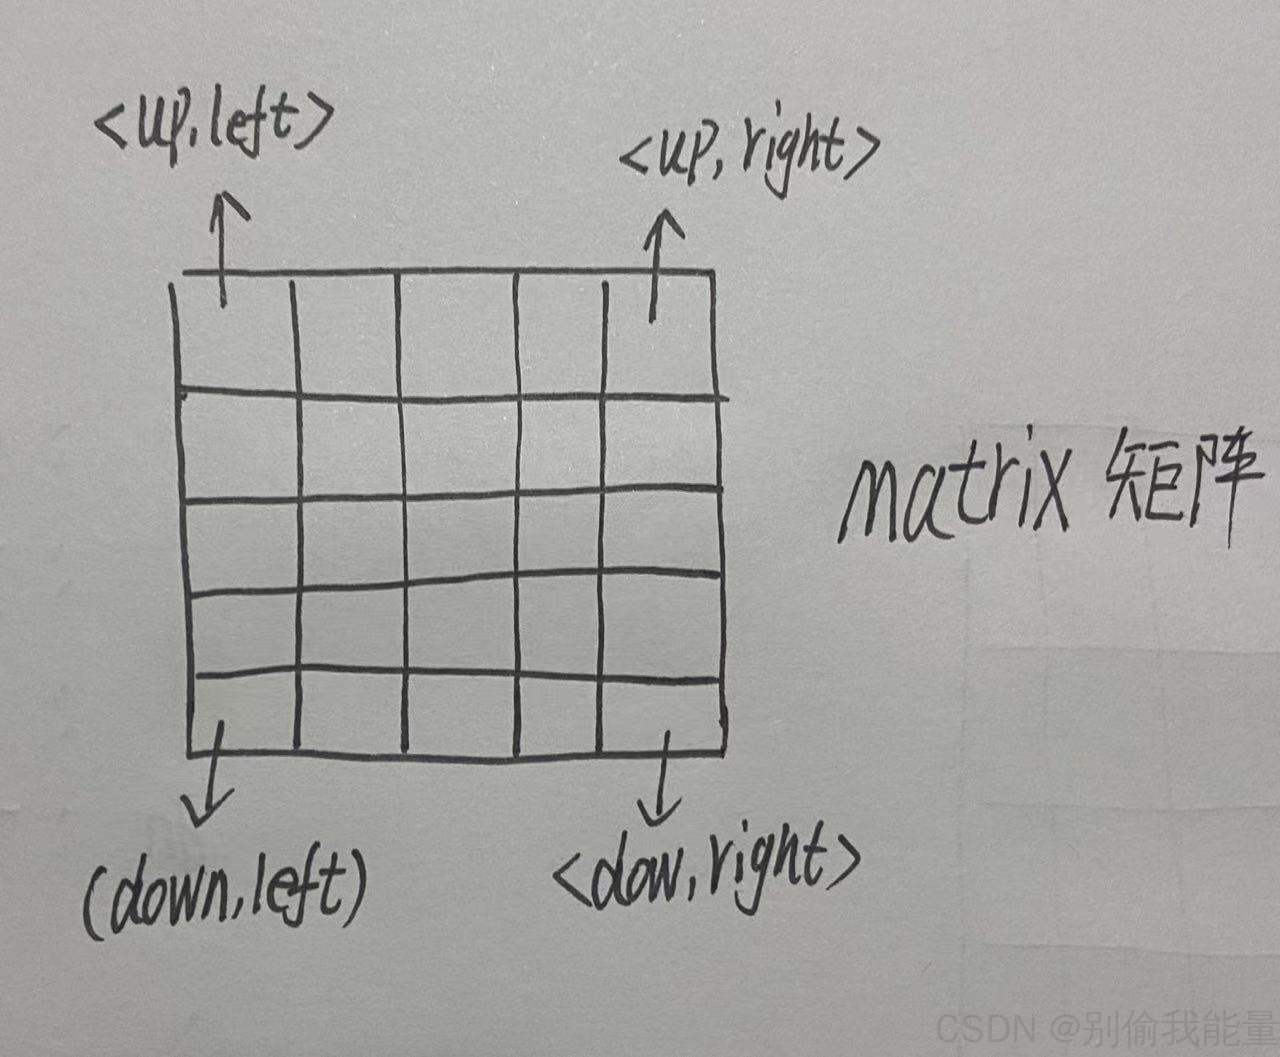 <up,left>
<up,right>
matrix 矩阵
(down,left)
<dow,right>
CSDN @别偷我能量